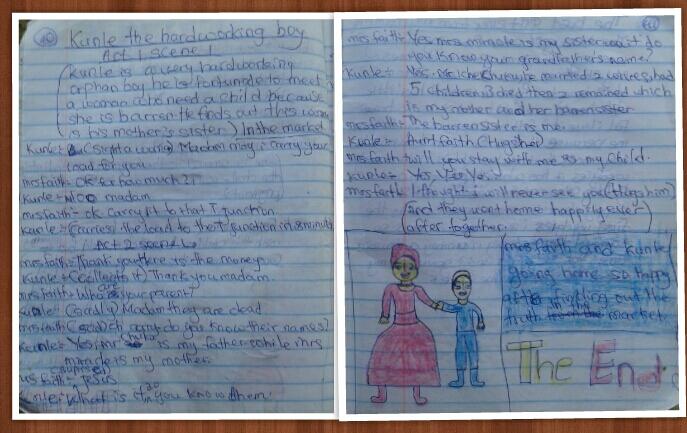 Kunle the hardworking boy
Act 1 scene 1
(Kunle is a very hardworking
orphan boy he is fortunate to meet
a woman who need a child because
she is barren He finds out this woman
is his mother's sister) In the market
Kunle:- Madam may i carry your
load for you
mrs faith:- ok for how much?
Kunle:- N100 madam
mrs faith:- ok carry it to that T junction.
Kunle:- (carries the load to the T junction in 8 minutes
Act 2 scene
mrs faith:- Thank you here is the money
Kunle:- (collects it) Thank you madam.
mrs faith:- Who are your parent?
Kunle:- (sadly) Madam they are dead
mrs faith:- (sad) Eh agny do you know their names?
Kunle:- Yes, mr is my father while mrs
miracle is my mother.
mrs faith:- (suprised) Jesus
Kunle:- What is it do you know them.
mrs faith:- Yes mrs miracle is my sister wait do
you know your grandfathers name?
Kunle:- married 2 wives, had
5 children, 3 died then 2 remained which
is my mother and her barren sister
mrs faith:- The barren sister is me.
Kunle:- Aunt faith (Hugs her)
mrs faith:- will you stay with me as my child.
Kunle:- Yes, Yes, Yes.
mrs faith:- I thought i will never see you (Hugs him)
(And they went home happily ever
after together)
mrs faith and Kunle
going home so happy
after finding out the
truth in the market.
The End